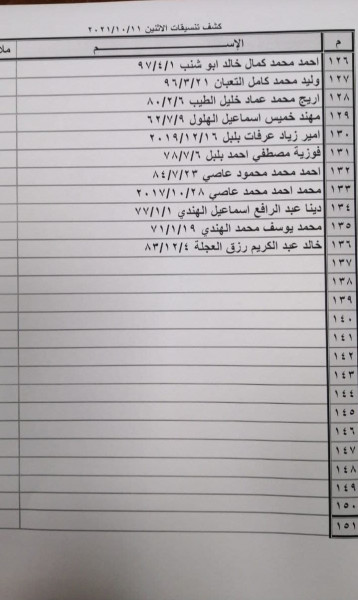 كشف تنسيقات الاثنين ٢٠٢١/١٠/١١
م الإســـــم ملا
١٢٦ احمد محمد كمال خالد ابو شنب ٩٧/٤/١
١٢٧ وليد محمد كامل التعبان ٩٦/٣/٢١
١٢٨ اريج محمد عماد خليل الطيب ٨٠/٢/٦
١٢٩ مهند خميس اسماعيل الهلول ٦٢/٧/٩
١٣٠ امير زياد عرفات بلبل ٢٠١٩/١٢/١٦
١٣١ فوزية مصطفي احمد بلبل ٧٨/٧/٦
١٣٢ احمد محمد محمود عاصي ٨٤/٧/٢٣
١٣٣ محمد احمد محمد عاصي ٢٠١٧/١٠/٢٨
١٣٤ دينا عبد الرافع اسماعيل الهندي ٧٧/١/١
١٣٥ محمد يوسف محمد الهندي ٧١/١/١٩
١٣٦ خالد عبد الكريم رزق العجلة ٨٣/١٢/٤
١٣٧
١٣٨
١٣٩
١٤٠
١٤١
١٤٢
١٤٣
١٤٤
١٤٥
١٤٦
١٤٧
١٤٨
١٤٩
١٥٠
١٥١